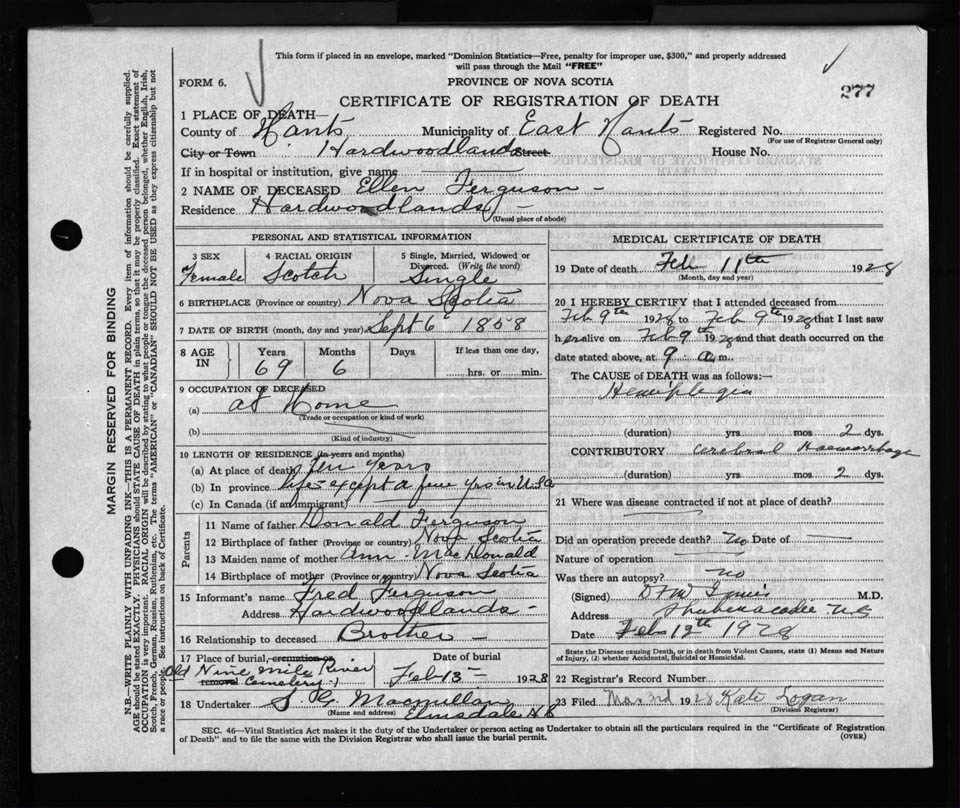 This form if placed in an envelope, marked "Dominion Statistics—Free, penalty for improper use, $300," and properly addressed
will pass through the Mail "FREE"
FORM 6.
PROVINCE OF NOVA SCOTIA
277
CERTIFICATE OF REGISTRATION OF DEATH
1 PLACE OF DEATH—
County of Hants Municipality of East Hants Registered No.
(For use of Registrar General only)
City or Town Hardwoodlands Street House No.
If in hospital or institution, give name
2 NAME OF DECEASED Ellen Ferguson -
Residence Hardwoodlands -
(Usual place of abode)
PERSONAL AND STATISTICAL INFORMATION
3 SEX 4 RACIAL ORIGIN 5 Single, Married, Widowed or
Divorced. (Write the word)
Female Scotch Single
6 BIRTHPLACE (Province or country) Nova Scotia
7 DATE OF BIRTH (month, day and year) Sept 6 1858
8 AGE IN Years Months Days If less than one day,
69 6 hrs. or min.
9 OCCUPATION OF DECEASED
(a) at Home
(Trade or occupation or kind of work)
(b)
(Kind of industry)
10 LENGTH OF RESIDENCE (In years and months)
(a) At place of death ten years
(b) In province life - except a few yrs in U.S.a
(c) In Canada (if an immigrant)
Parents
11 Name of father Donald Ferguson
12 Birthplace of father (Province or country) Nova Scotia
13 Maiden name of mother Ann MacDonald
14 Birthplace of mother (Province or country) Nova Scotia
15 Informant's name Fred Ferguson
Address Hardwoodlands -
16 Relationship to deceased Brother -
17 Place of burial, cremation or Date of burial
Old Nine mile River
removal Cemetery Feb 13 - 1928
18 Undertaker Macmullin
(Name and address) Elmsdale, N.S
MEDICAL CERTIFICATE OF DEATH
19 Date of death Feb 11th 1928
(Month, day and year)
20 I HEREBY CERTIFY that I attended deceased from
Feb 9th 1928 to Feb 9th 1928 that I last saw
her alive on Feb 9 1928 and that death occurred on the
date stated above, at 9 a.m.
The CAUSE of DEATH was as follows:—
Hemiplegia
(duration) yrs mos 2 dys.
CONTRIBUTORY Cerebral Haemorrhage
(duration) yrs mos 2 dys.
21 Where was disease contracted if not at place of death?
Did an operation precede death? no Date of
Nature of operation
Was there an autopsy? no
(Signed) M.D.
Address Shubenacadie NS
Date Feb 12th 1928
State the Disease causing Death, or in death from Violent Causes, state (1) Means and Nature
of Injury, (2) whether Accidental, Suicidal or Homicidal.
22 Registrar's Record Number
23 Filed Mar. 3rd 1928 Kate Logan
(Division Registrar)
SEC. 46—Vital Statistics Act makes it the duty of the Undertaker or person acting as Undertaker to obtain all the particulars required in the "Certificate of Registration
of Death" and to file the same with the Division Registrar who shall issue the burial permit.
(OVER)
MARGIN RESERVED FOR BINDING
N.B.—WRITE PLAINLY WITH UNFADING INK—THIS IS A PERMANENT RECORD. Every item of information should be carefully supplied.
AGE should be stated EXACTLY. PHYSICIANS should STATE CAUSE OF DEATH in plain terms, so that it may be properly classified. Exact statement of
OCCUPATION is very important. RACIAL ORIGIN will be described by stating to what people or tongue the deceased person belonged, whether English, Irish,
Scotch, French, German, Russian, Ruthenian, etc. The terms "AMERICAN" or "CANADIAN" SHOULD NOT BE USED as they express citizenship but not
a race or people. See instructions on back of Certificate.